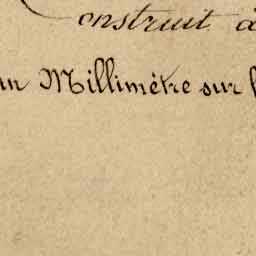 onstruit à
un Millimètre sur l